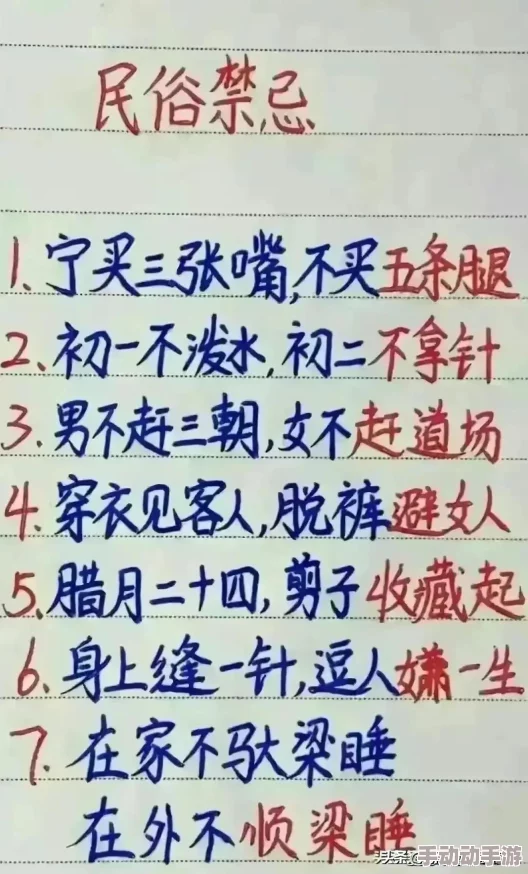 民俗禁忌
1、宁买三张嘴,不买五条腿
2、初一不泼水,初二不拿针
3、男不赶三朝,女不赶道场
4、穿衣见客人,脱裤避女人
5、腊月二十四,剪子收藏起
6、身上缝一针,逗人嫌一生
7、在家不驮梁睡
在外不顺梁睡
手动动手游